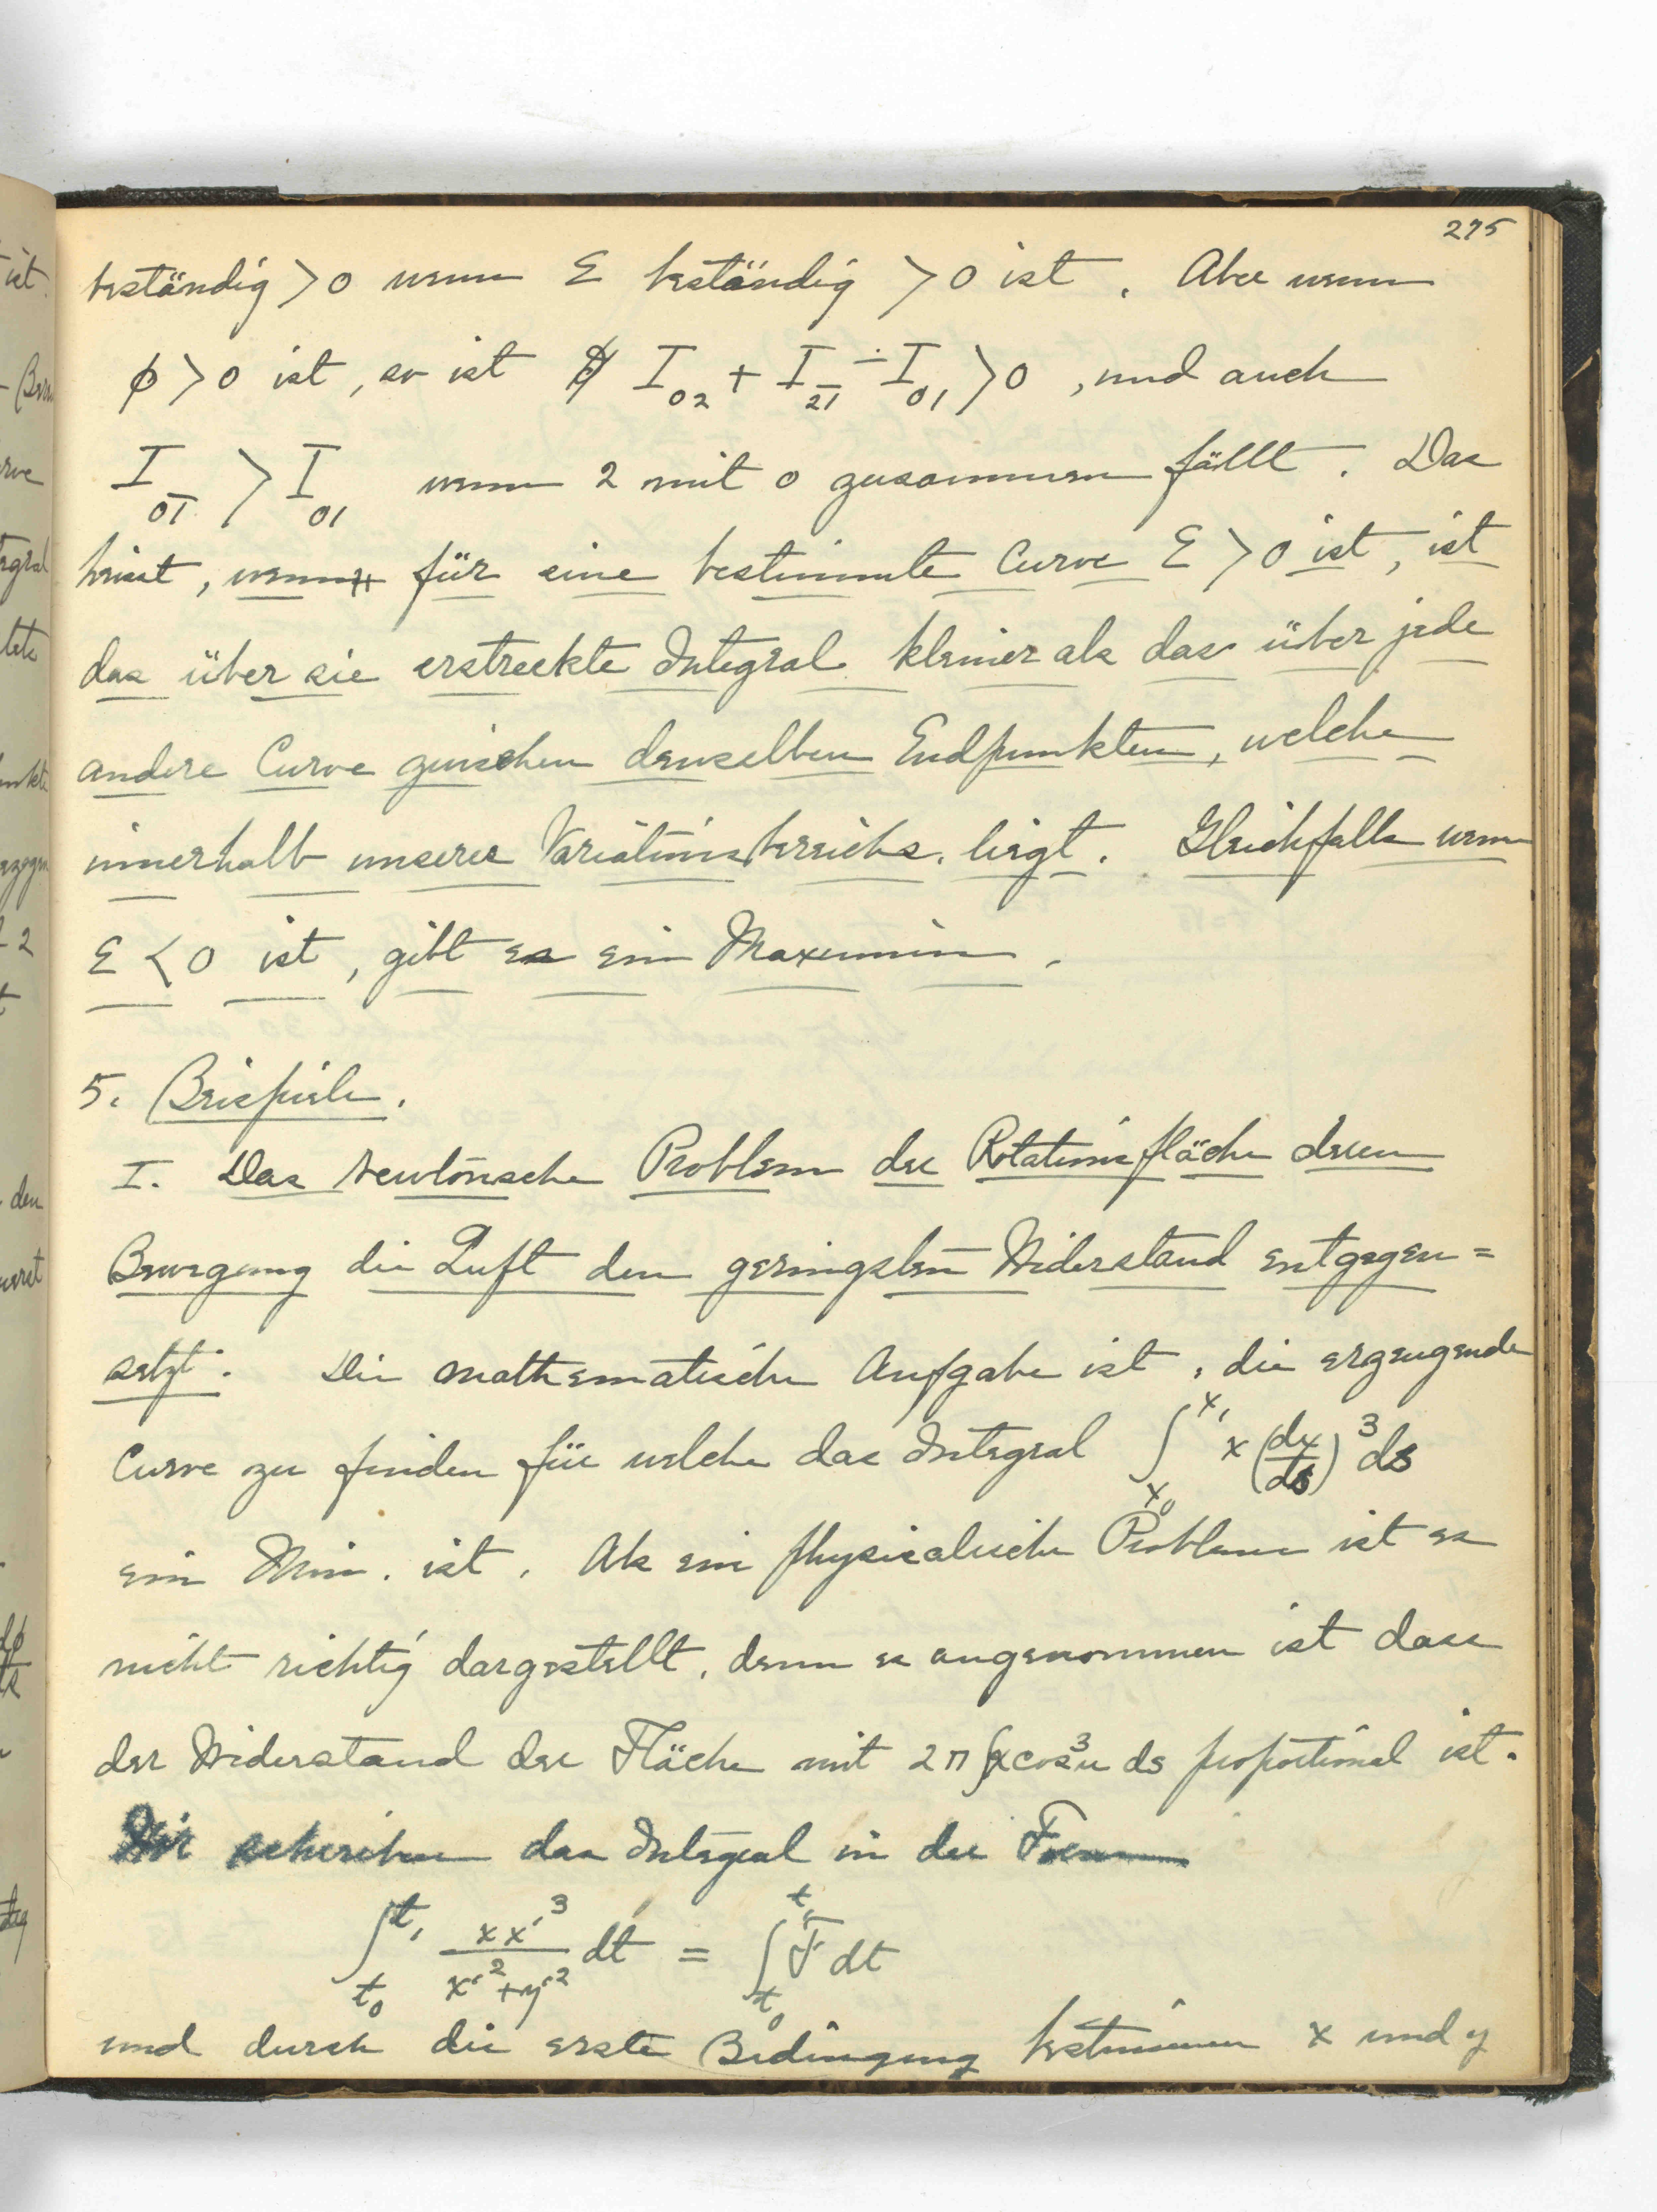 275
beständig > 0 wenn Ɛ beständig > 0 ist. Aber wenn
ϕ > 0 ist, so ist I₀₂ + I₂₁̄ ∸ I₀₁ > 0, und auch
I₀₁̄ > I₀₁ wenn 2 mit 0 zusammen fällt. Das
heisst, wenn für eine bestimmte Curve Ɛ > 0 ist, ist
das über sie erstreckte Integral kleiner als das über jede
andere Curve zwischen denselben Endpunkten, welche
innerhalb unseres Variationsbereichs liegt. Gleichfalls wenn
Ɛ < 0 ist, gibt es ein Maximum.
5. Beispiele.
I. Das Newtonsche Problem der Rotationsfläche deren
Bewegung die Luft den geringsten Widerstand entgegen=
setzt. Die mathematische Aufgabe ist, die erzeugende
Curve zu finden für welche das Integral ∫ₓ₀ˣ¹ x (dx/ds)³ ds
ein Min. ist. Als ein physicalische Problem ist es
nicht richtig dargestellt, denn es angenommen ist dass
der Widerstand der Fläche mit 2π∫x cos³u ds proportional ist.
Wir schreiben das Integral in der Form
∫ₜ₀ᵗ¹ xx'³/(x'²+y'²) dt = ∫ₜ₀ᵗ¹ F dt
und durch die erste Bedingung bestimmen x und y